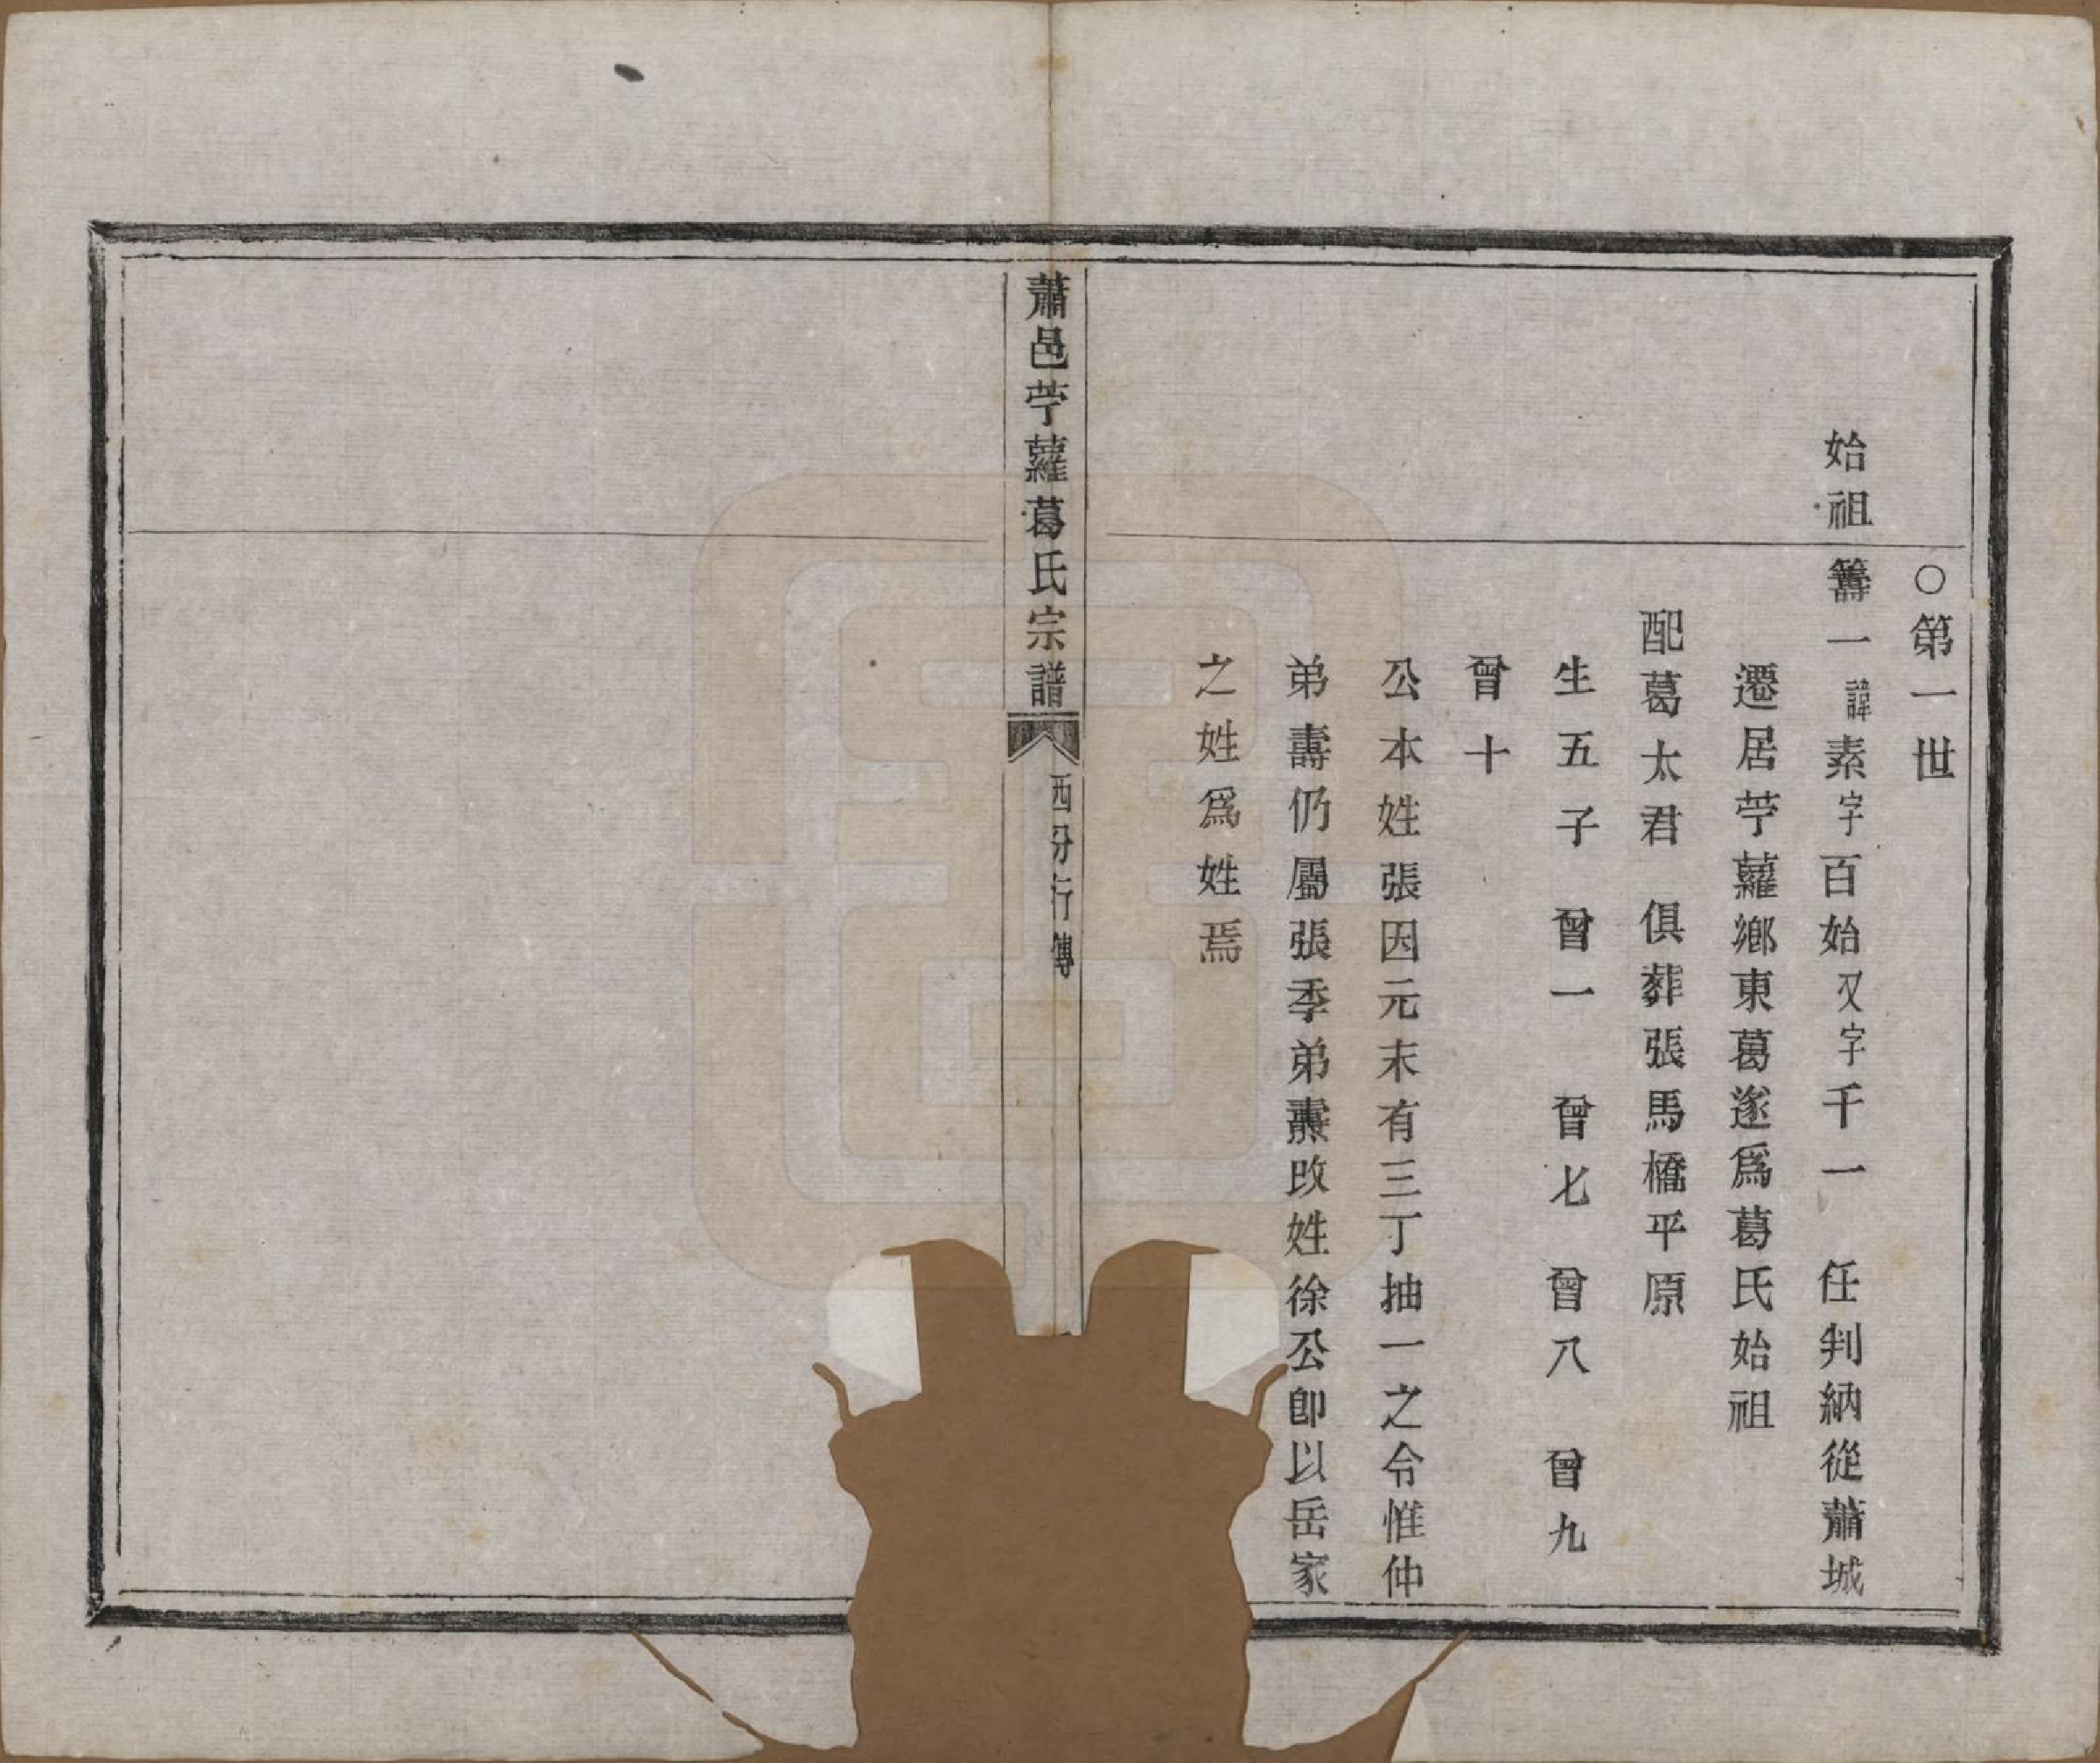 ○第一世
始祖
籌一諱素字百始又字千一　任判納從蕭城
遷居苧蘿鄉東葛遂爲葛氏始祖
配葛太君　俱葬張馬橋平原
生五子　曾一　曾七　曾八　曾九
曾十
公本姓張因元末有三丁抽一之令惟仲
弟壽仍屬張季弟燾改姓徐公卽以岳家
之姓爲姓焉
蕭邑苧蘿葛氏宗譜
西分行傳